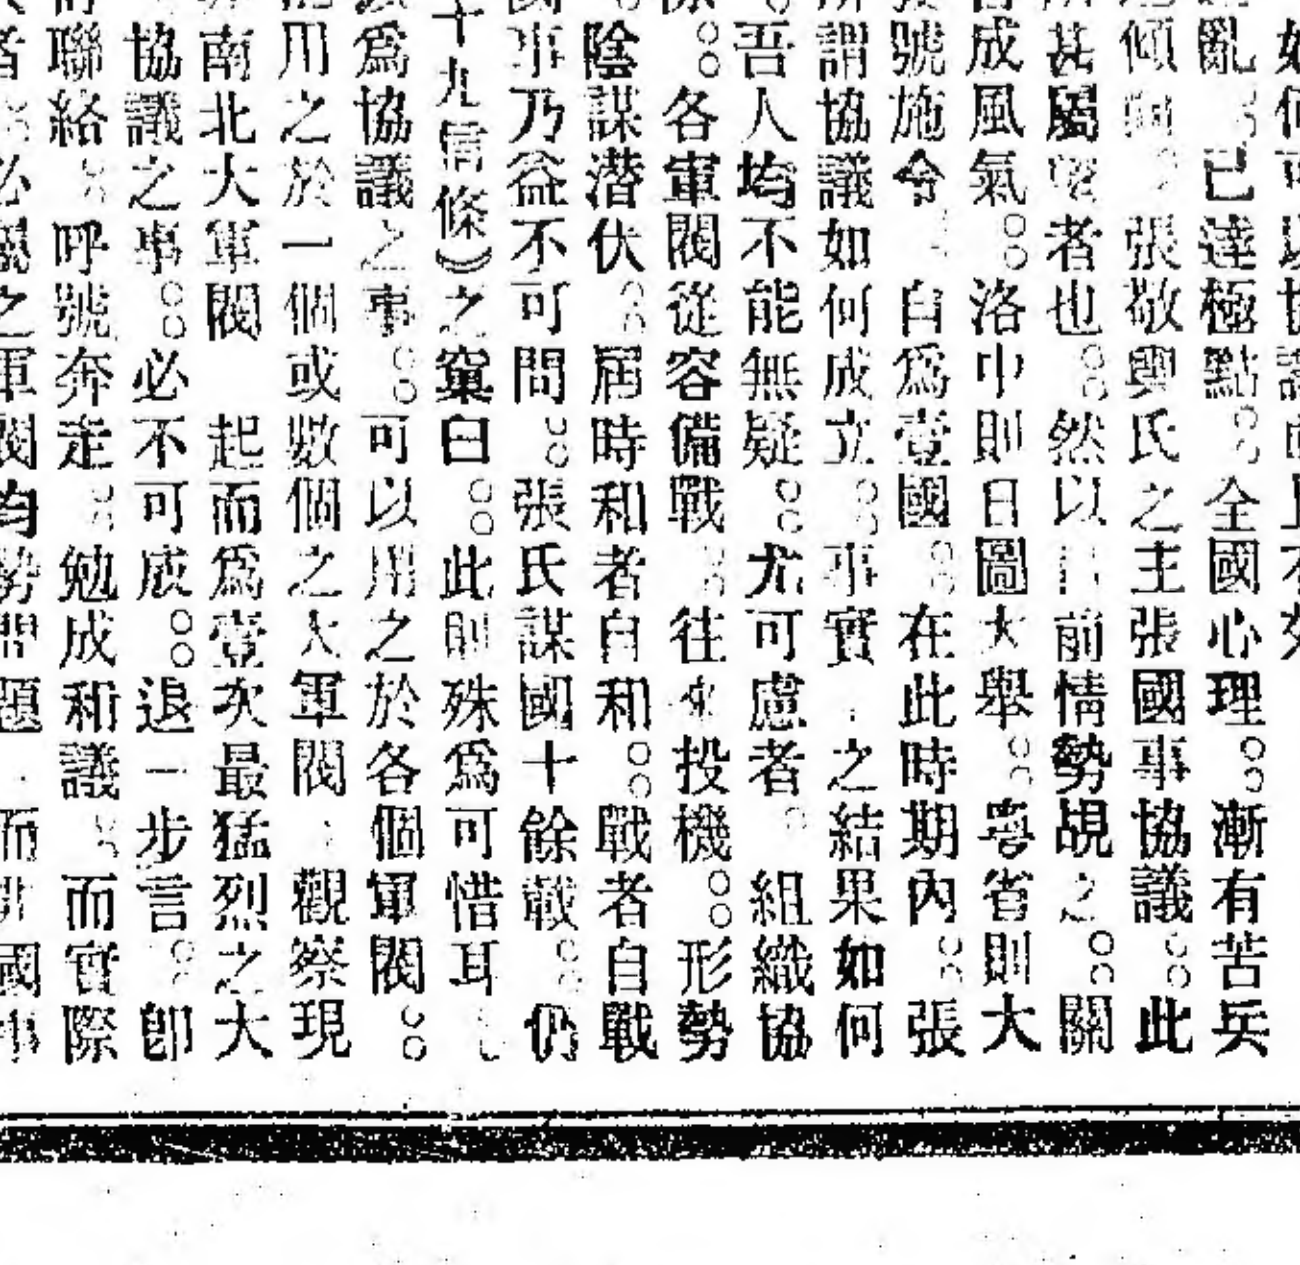 亂。已達極點。全國心理。漸有苦兵
傾向。張敬輿氏之主張國事協議。此
甚屬望者也。然以目前情勢覘之。關
成風氣。洛中則日圖大舉。粵省則大
號施令。自爲壹國。在此時期內。張
謂協議如何成立。事實之結果如何
吾人均不能無疑。尤可慮者。組織協
。各軍閥從容備戰。往來投機。形勢
陰謀潛伏。屆時和者自和。戰者自戰
事乃益不可問。張氏謀國十餘載。仍
十九信條)之窠臼。此則殊爲可惜耳。
爲協議之事。可以用之於各個軍閥。
用之於一個或數個之大軍閥。觀察現
南北大軍閥 起而爲壹次最猛烈之大
協議之事。必不可成。退一步言。卽
聯絡。呼號奔走。勉成和議。而實際
之軍閥均勢問題。而非國事